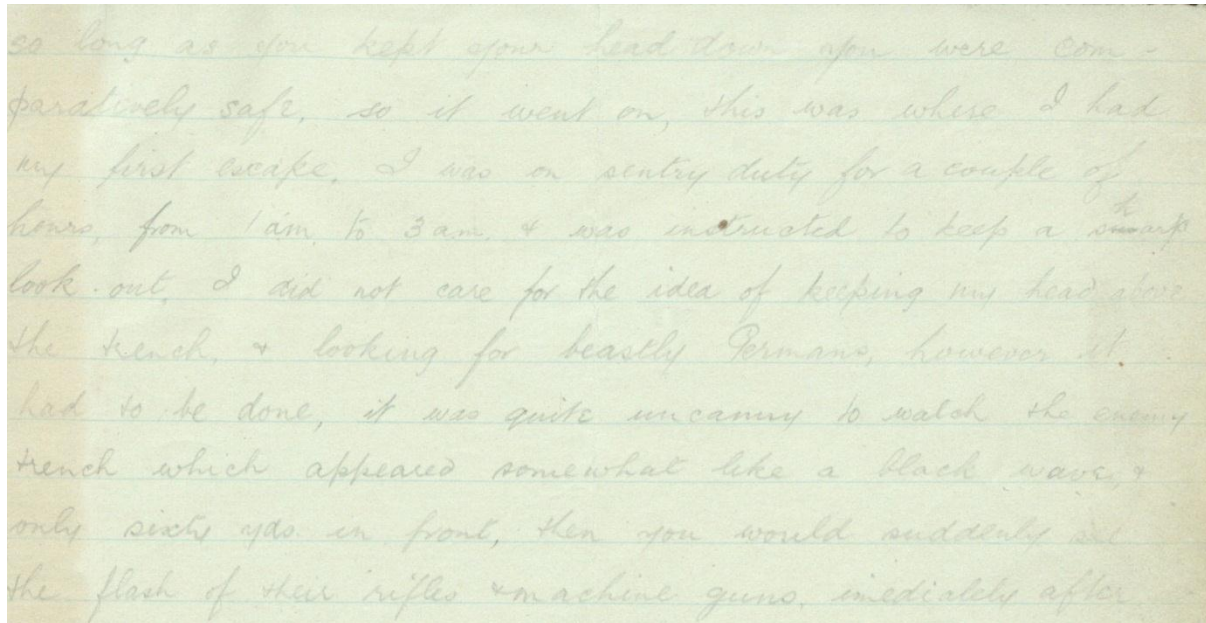 so long as you kept your head down you were com-
paratively safe, so it went on, this was where I had
my first escape. I was on sentry duty for a couple of
hours, from 1 am. to 3 am. & was instructed to keep a sharp
look out, I did not care for the idea of keeping my head above
the trench, & looking for beastly Germans, however it
had to be done, it was quite uncanny to watch the enemy
trench which appeared somewhat like a black wave, &
only sixty yds. in front, then you would suddenly see
the flash of their rifles & machine guns, imediately after